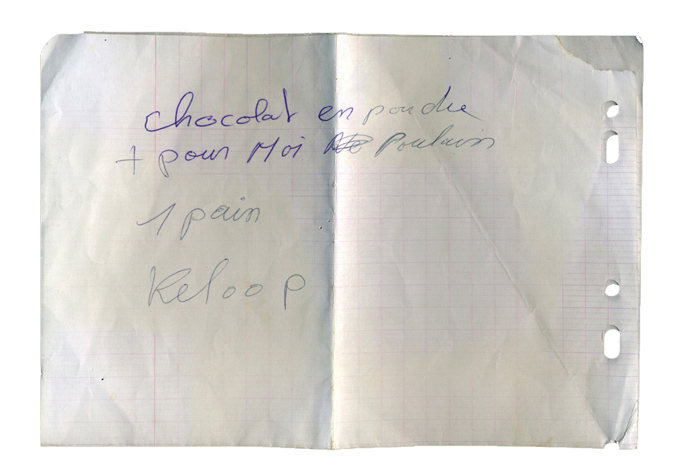 chocolat en poudre
+ pour Moi Poulain
1 pain
Keloop